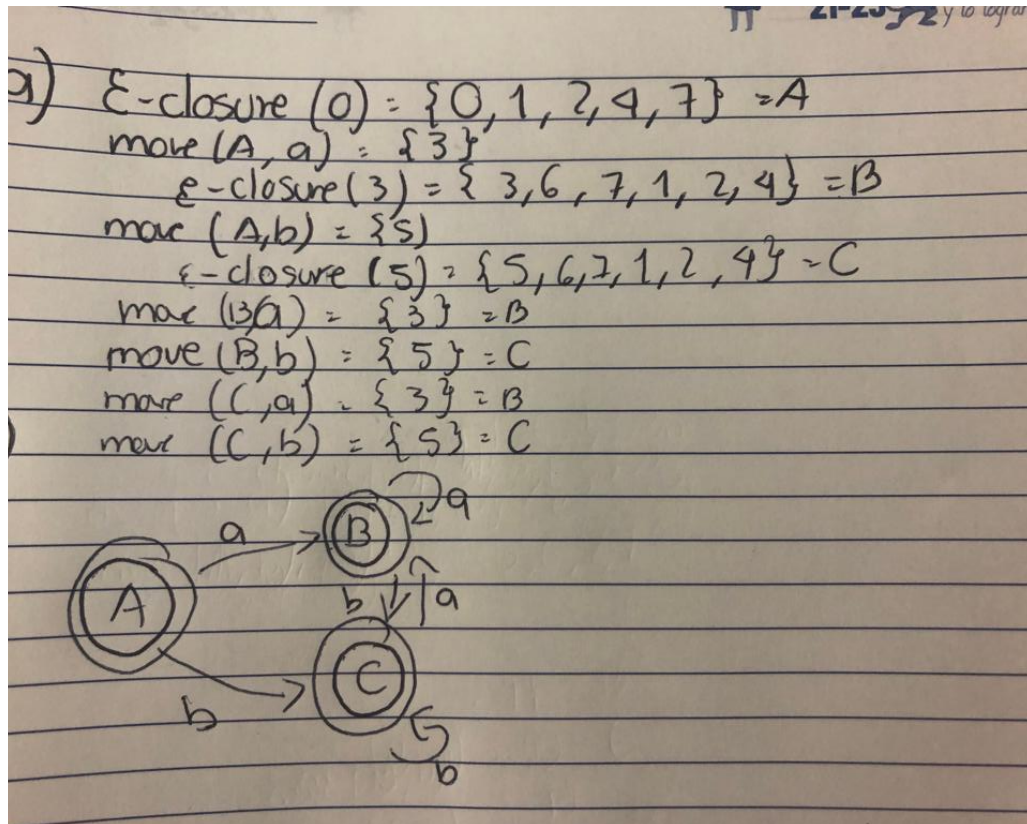 21-23 y lo lograr
a) ε-closure (0) = {0, 1, 2, 4, 7} = A
move (A, a) = {3}
ε-closure (3) = {3, 6, 7, 1, 2, 4} = B
move (A,b) = {5}
ε-closure (5) = {5, 6, 7, 1, 2, 4} = C
move (B,a) = {3} = B
move (B, b) = {5} = C
move (C, a) = {3} = B
move (C, b) = {5} = C
a B a
A b a
C
b b